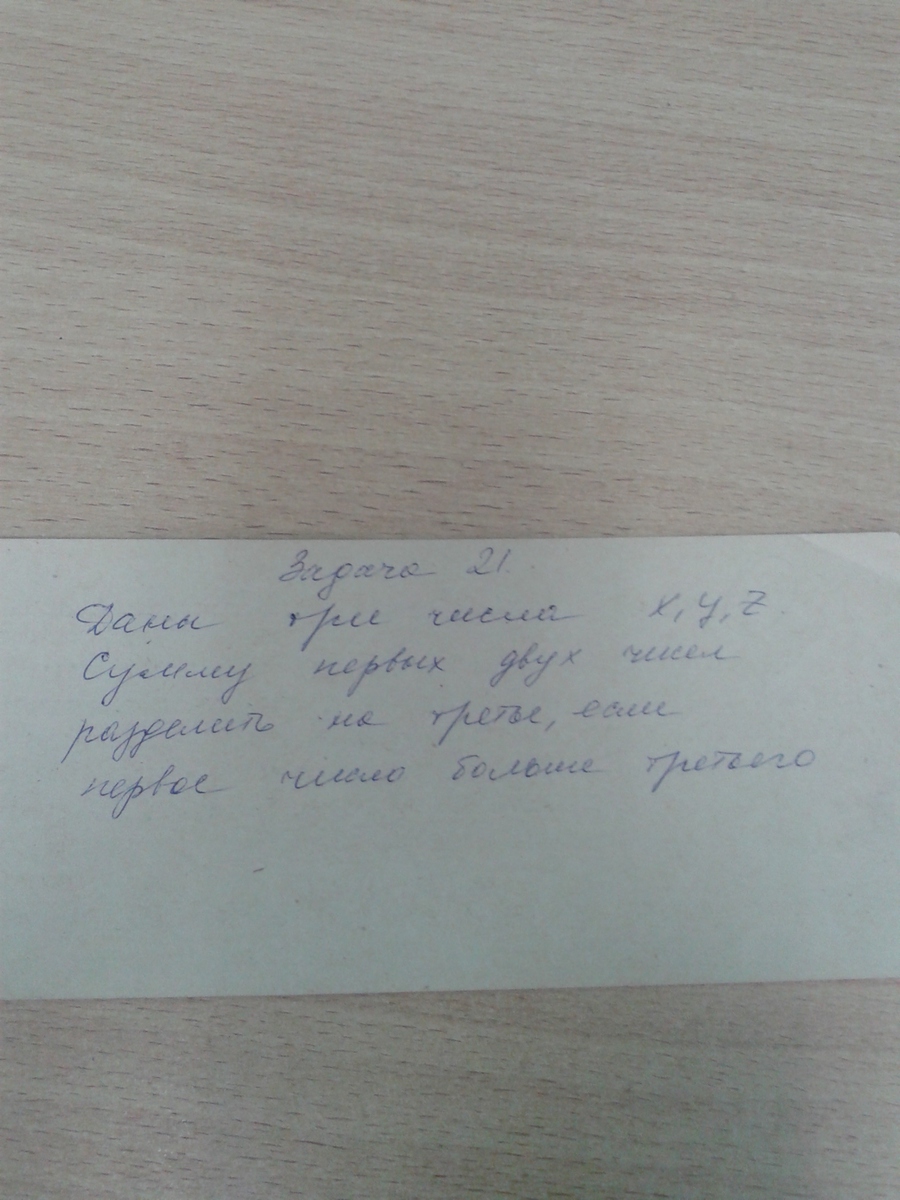 Задача 21.
Даны три числа X, Y, Z.
Сумму первых двух чисел
разделить на третье, если
первое число больше третьего